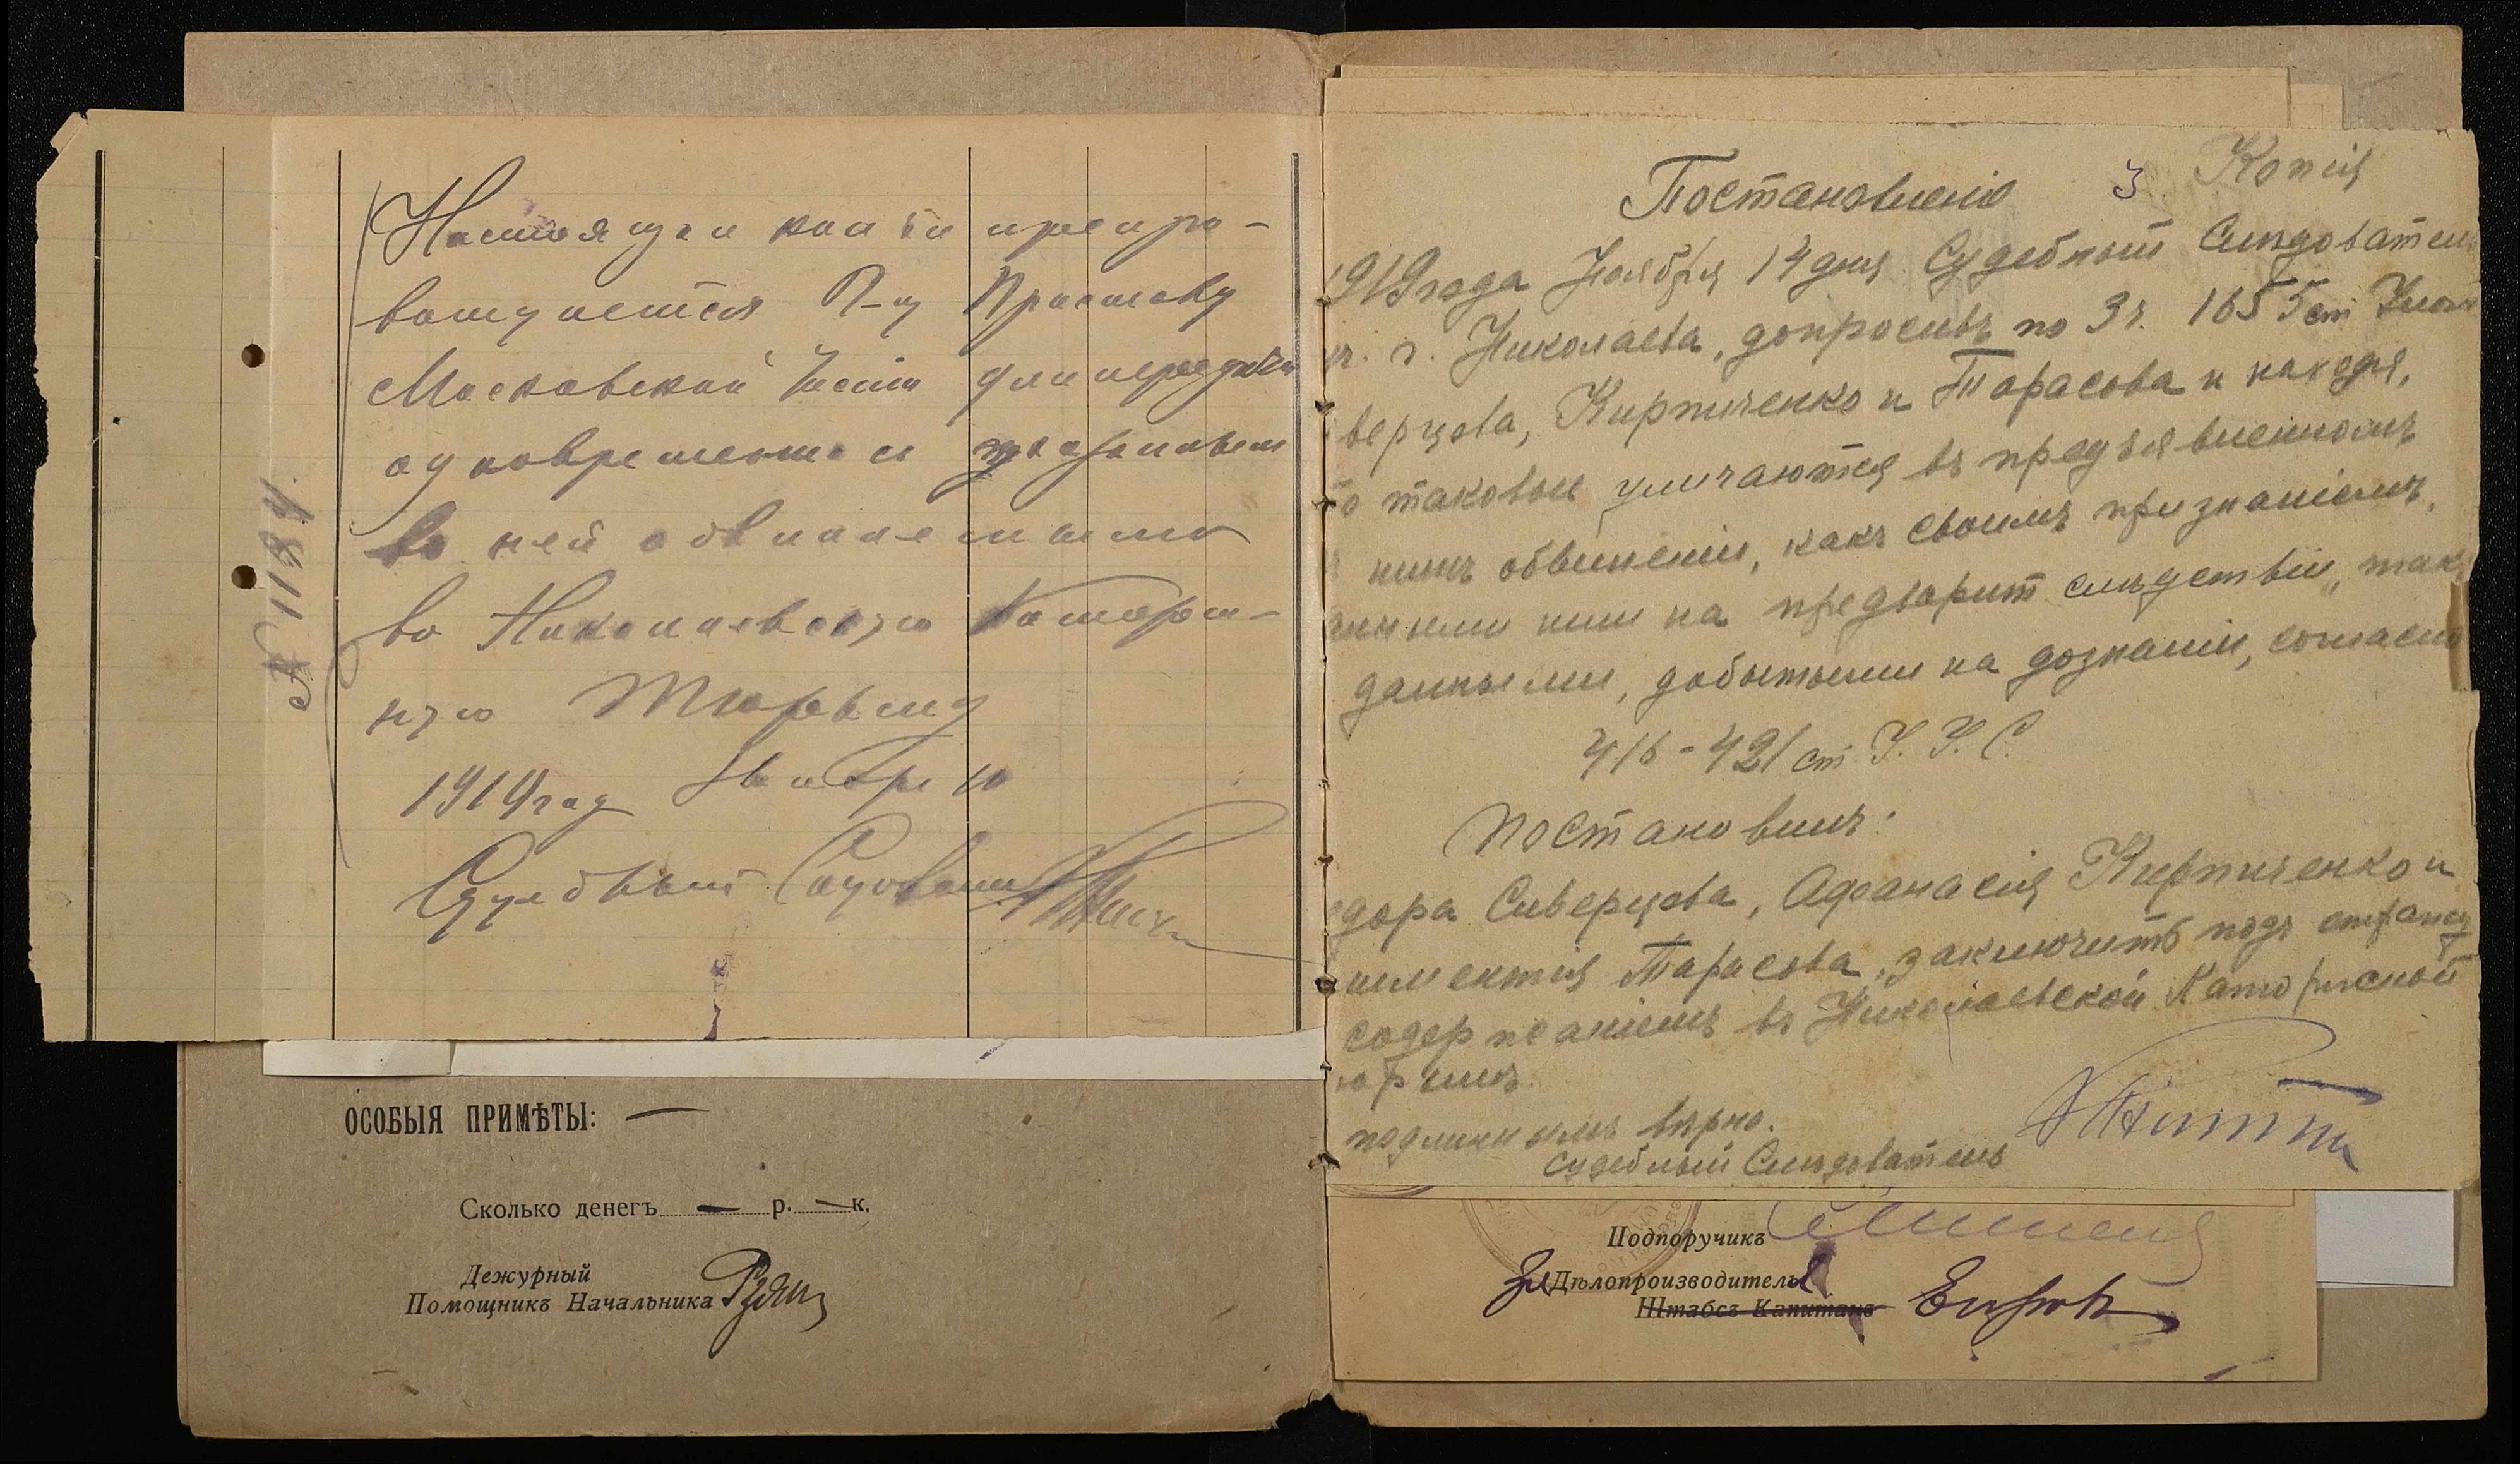 Настоящая копия препро-
вождается Г-ну Приставу
Московской части для передачи
одновременно с
въ ней обвиняемыми
въ Николаевскую Каторж-
ную Тюрьму
1919 год 10
Судебный
№ 1184.
ОСОБЫЯ ПРИМѢТЫ: —
Сколько денегъ — р. — к.
Дежурный
Помощникъ Начальника
3 Копія
Постановленіе
1919 года Ноября 14 дня Судебный Слѣдователь
уч. г. Николаева, допросивъ по 3 ч. 1655 ст Улож
верцева, Кирпиченко и Тарасова и находя,
то таковые уличаются въ предъявленномъ
нимъ обвиненіи, какъ своимъ признаніемъ,
ими на предварит слѣдствіи, такъ
данными, добытыми на дознаніи, согласно
416-421 ст У. У. С.
постановилъ:
дора Сиверцева, Афанасія Кирпиченко и
Тарасова, заключить подъ стражу
содержаніемъ въ Николаевской Каторжной
юрьмѣ.
подлиннымъ вѣрно.
Судебный Слѣдователь
Подпоручикъ
За Дѣлопроизводителя
Штабсъ-Капитанъ